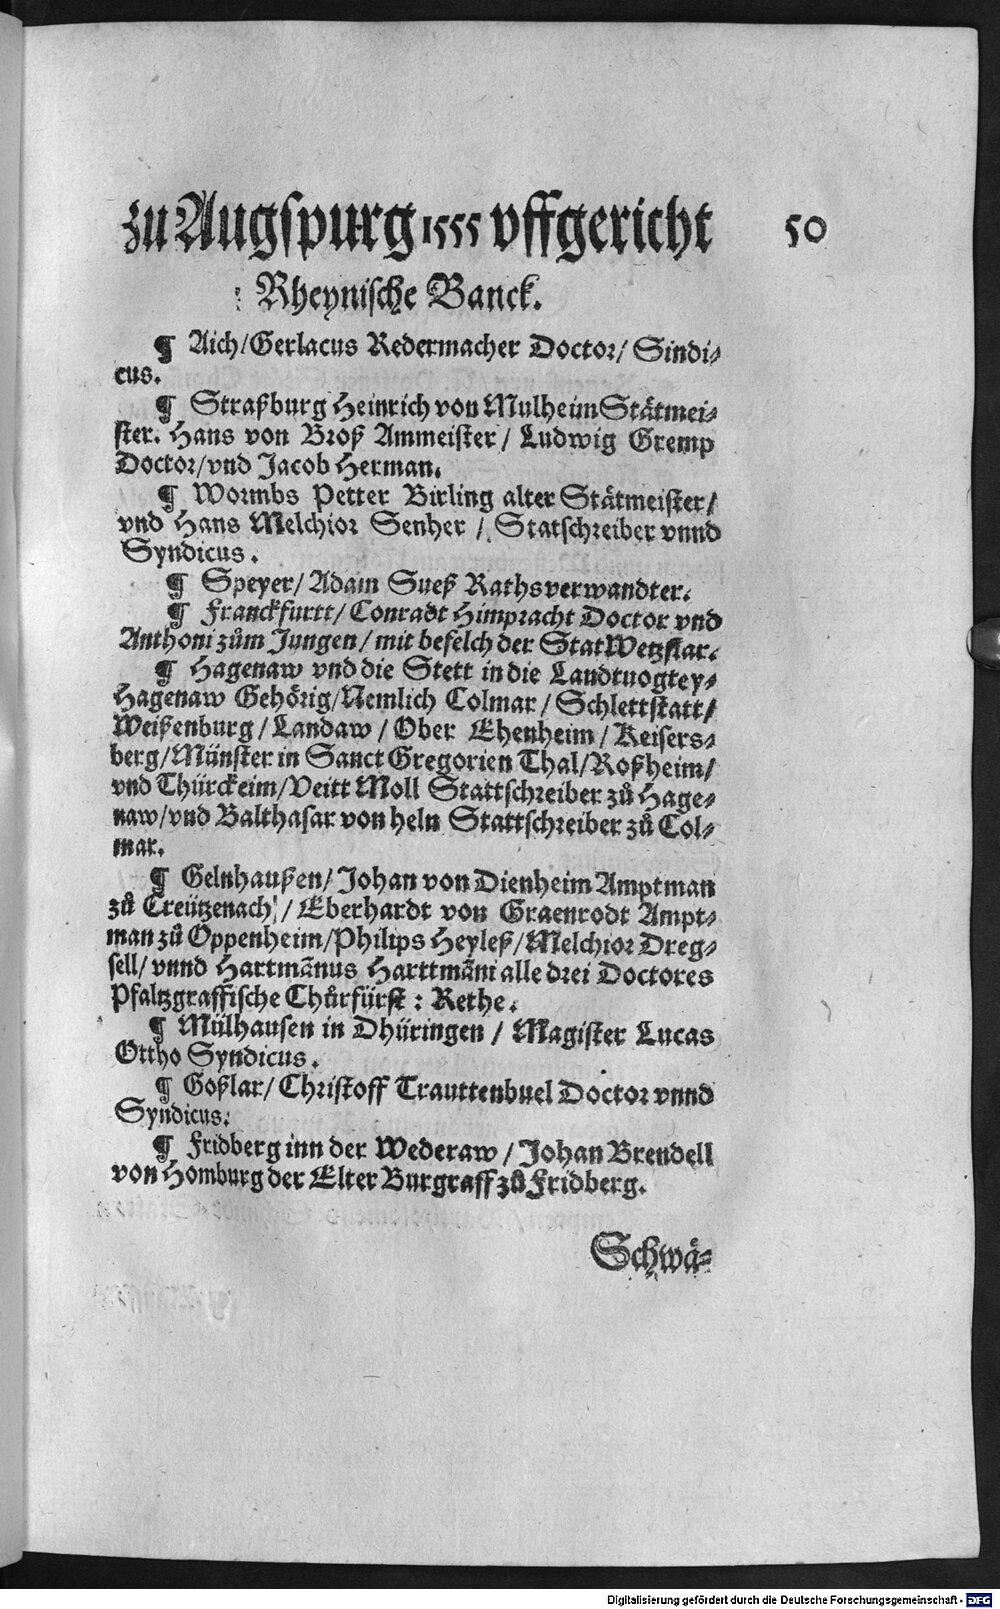 zu Augspurg 1555 vffgericht 50
Rheynische Banck.
¶ Aich/Gerlacus Redermacher Doctor/ Sindi⸗
cus.
¶ Straßburg Heinrich von Mulheim Stätmei⸗
ster. Hans von Broß Ammeister/ Ludwig Gremp
Doctor/vnd Jacob Herman.
¶ Wormbs Petter Birling alter Stätmeister/
vnd Hans Melchior Senher / Statschreiber vnnd
Syndicus.
¶ Speyer/ Adam Sueß Rathsverwandter.
¶ Franckfurtt/ Conradt Himpracht Doctor vnd
Anthoni zům Jungen/ mit befelch der Stat Wetzflar.
¶ Hagenaw vnd die Stett in die Landtuogtey⸗
Hagenaw Gehörig/Nemlich Colmar/ Schlettstatt/
Weißenburg/ Landaw / Ober Ehenheim/ Keisers⸗
berg/Münster in Sanct Gregorien Thal/Roßheim/
vnd Thürckeim/Veitt Moll Stattschreiber zů Hage⸗
naw/vnd Balthasar von heln Stattschreiber zů Col⸗
mar.
¶ Gelnhaußen/ Johan von Dienheim Amptman
zů Creützenach/ Eberhardt von Graenrodt Ampt⸗
man zů Oppenheim/Philips Heyleß/Melchior Dreg⸗
sell/ vnnd Hartmānus Harttmāni alle drei Doctores
Pfaltzgraffische Chůrfürst: Rethe.
¶ Mülhausen in Dhüringen / Magister Lucas
Ottho Syndicus.
¶ Goßlar/ Christoff Trauttenbuel Doctor vnnd
Syndicus.
¶ Fridberg inn der Wederaw / Johan Brendell
von Homburg der Elter Burgraff zů Fridberg.
Schwä⸗
Digitalisierung gefördert durch die Deutsche Forschungsgemeinschaft - DFG